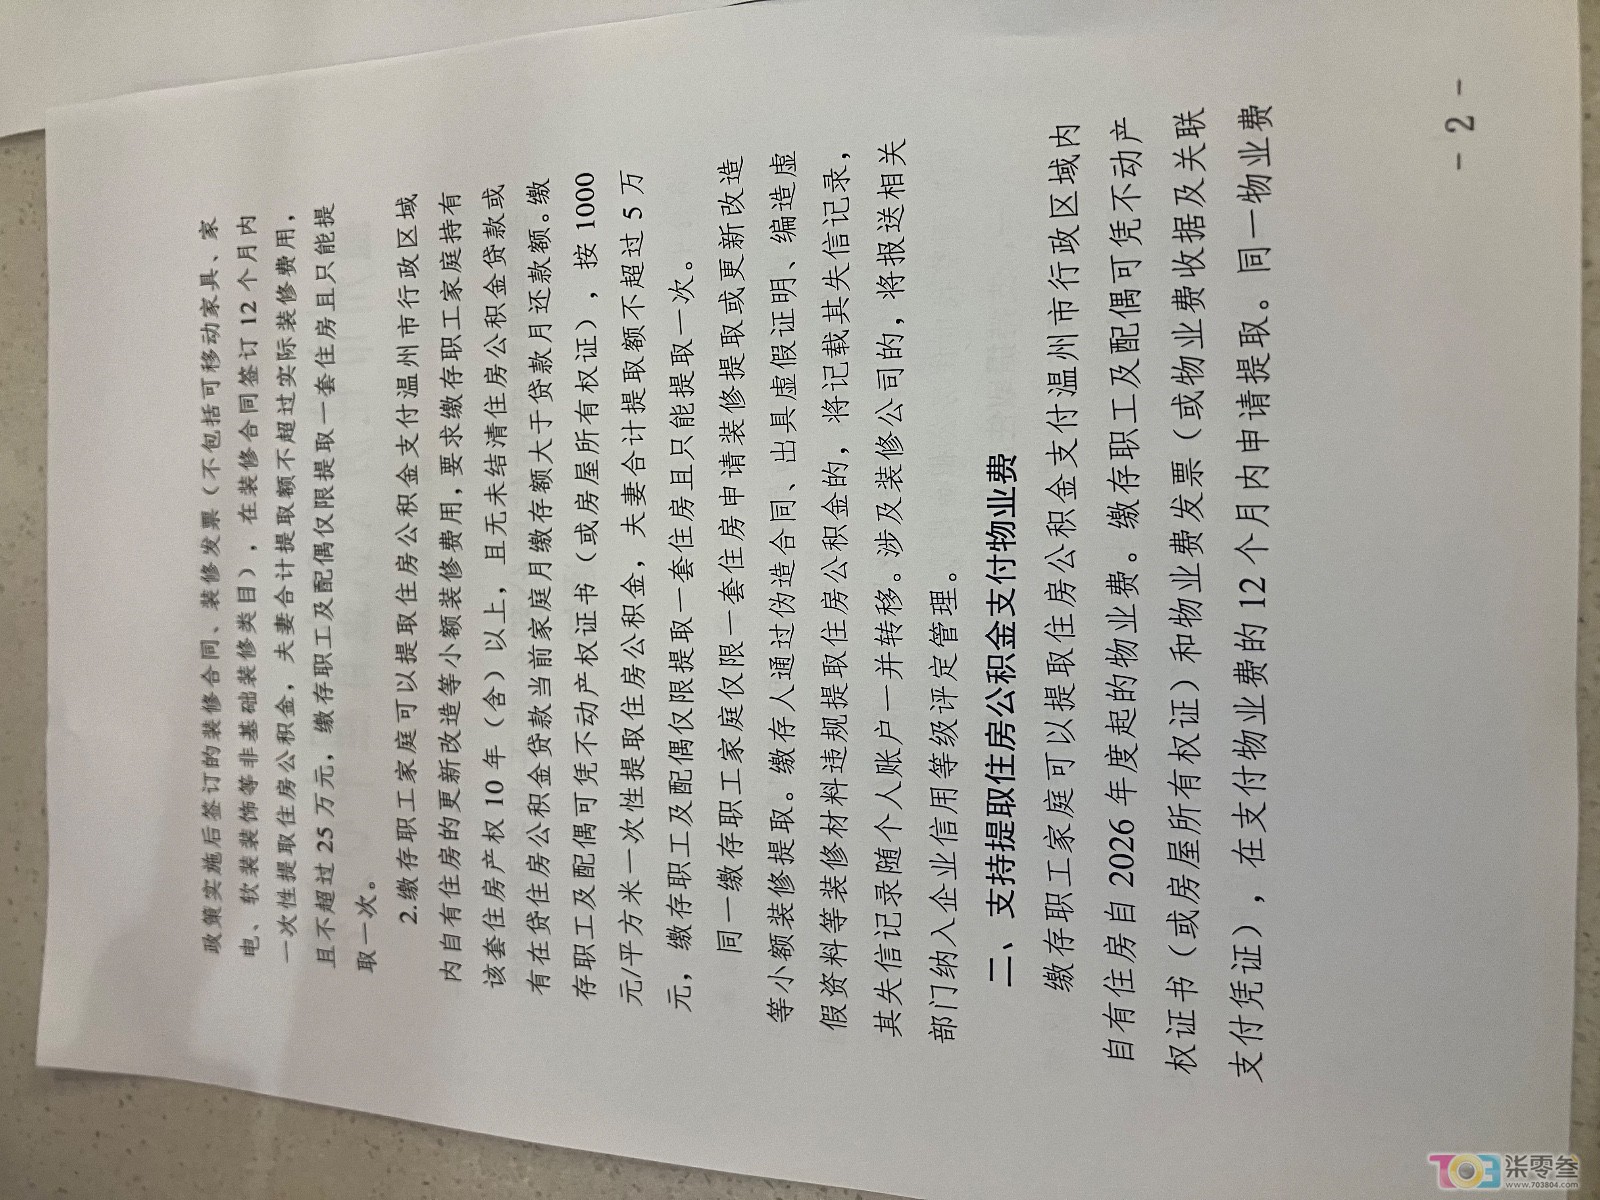 政策实施后签订的装修合同、装修发票（不包括可移动家具、家
电、软装装饰等非基础装修类目），在装修合同签订 12 个月内
一次性提取住房公积金，夫妻合计提取额不超过实际装修费用，
且不超过 25 万元，缴存职工及配偶仅限提取一套住房且只能提
取一次。
2.缴存职工家庭可以提取住房公积金支付温州市行政区域
内自有住房的更新改造等小额装修费用，要求缴存职工家庭持有
该套住房产权 10 年（含）以上，且无未结清住房公积金贷款或
有在贷住房公积金贷款当前家庭月缴存额大于贷款月还款额。缴
存职工及配偶可凭不动产权证书（或房屋所有权证），按 1000
元/平方米一次性提取住房公积金，夫妻合计提取额不超过 5 万
元，缴存职工及配偶仅限提取一套住房且只能提取一次。
同一缴存职工家庭仅限一套住房申请装修提取或更新改造
等小额装修提取。缴存人通过伪造合同、出具虚假证明、编造虚
假资料等装修材料违规提取住房公积金的，将记载其失信记录，
其失信记录随个人账户一并转移。涉及装修公司的，将报送相关
部门纳入企业信用等级评定管理。
二、支持提取住房公积金支付物业费
缴存职工家庭可以提取住房公积金支付温州市行政区域内
自有住房自 2026 年度起的物业费。缴存职工及配偶可凭不动产
权证书（或房屋所有权证）和物业费发票（或物业费收据及关联
支付凭证），在支付物业费的 12 个月内申请提取。同一物业费
- 2 -
703
柒零叁
www.703804.com